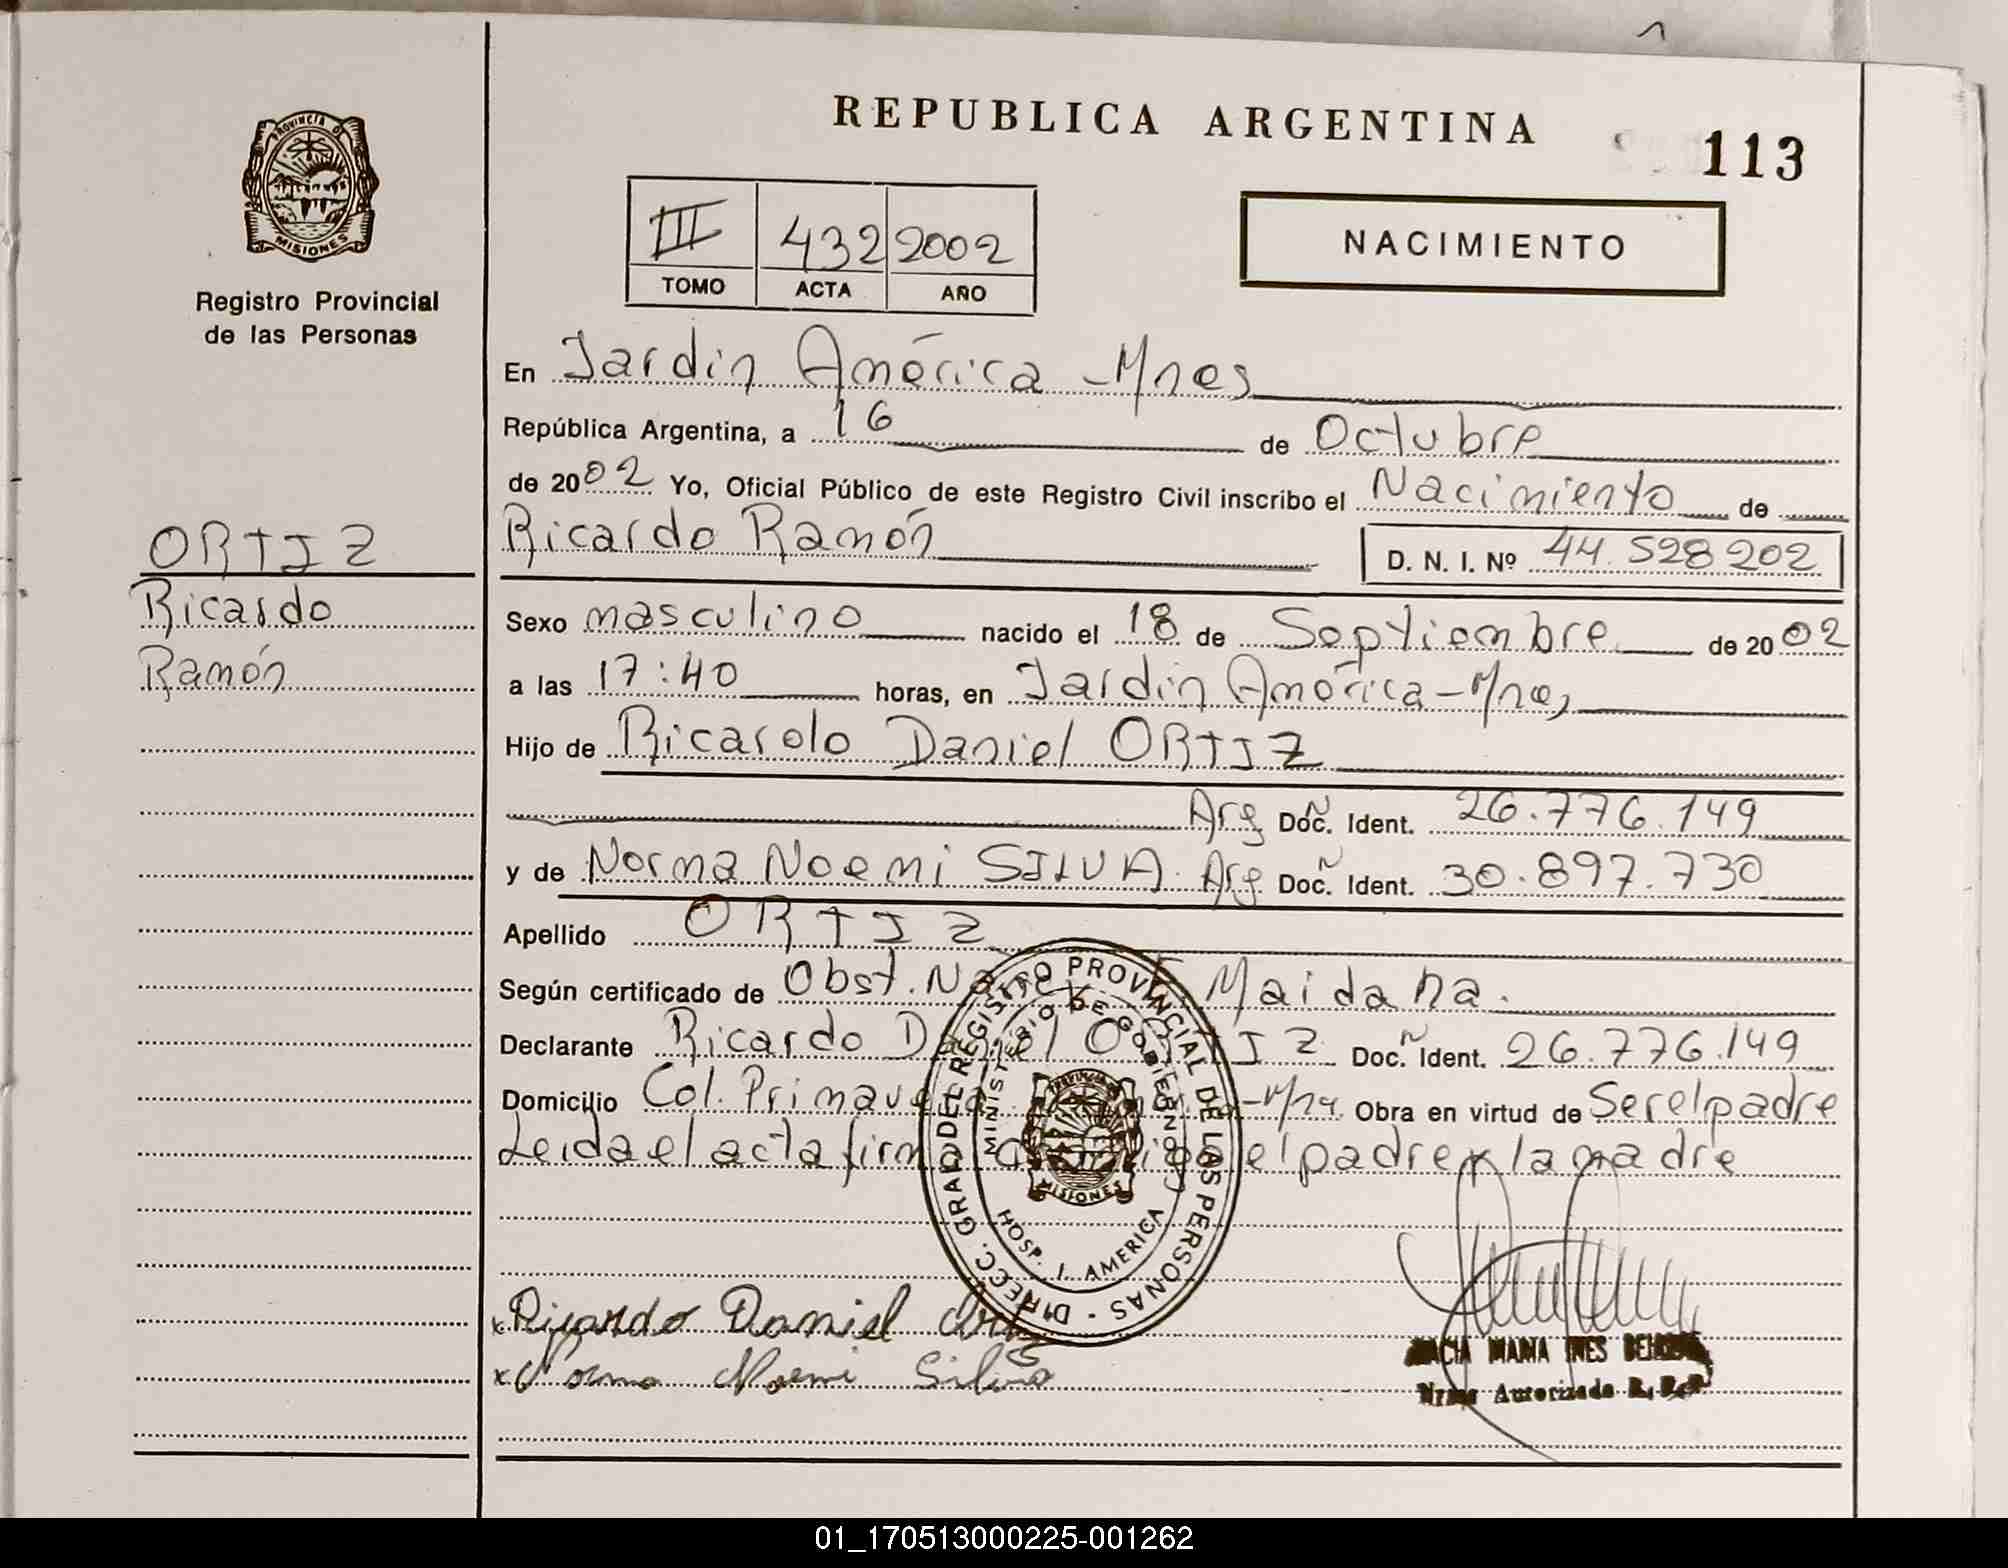 REPUBLICA ARGENTINA
113
PROVINCIA DE
MISIONES
Registro Provincial
de las Personas
III 432 2002
TOMO ACTA AÑO
NACIMIENTO
En Jardin América - Mnes
República Argentina, a 16 de Octubre
de 2002 Yo, Oficial Público de este Registro Civil inscribo el Nacimiento de
Ricardo Ramón D. N. I. Nº 44.528202
ORTIZ
Ricardo
Ramón
Sexo masculino nacido el 18 de Septiembre de 2002
a las 17:40 horas, en Jardin América - Mnes
Hijo de Ricardo Daniel ORTIZ
Arg Doc. Ident. 26.776.149
y de Norma Noemi SILVA. Arg Doc. Ident. 30.897.730
Apellido ORTIZ
Según certificado de Obst. Maidana.
Declarante Ricardo Daniel ORTIZ Doc. Ident. 26.776.149
Domicilio Col. Primavera Obra en virtud de Ser el padre
Leida el acta firman el padre y la madre
DIRECC. GRAL DEL REGISTRO PROVINCIAL DE LAS PERSONAS
MINISTERIO DE GOBIERNO
MISIONES
HOSP. J. AMERICA
x Ricardo Daniel Ortiz
x Norma Noemi Silva
MARIA INES
Autorizada R.P.P.
01_170513000225-001262